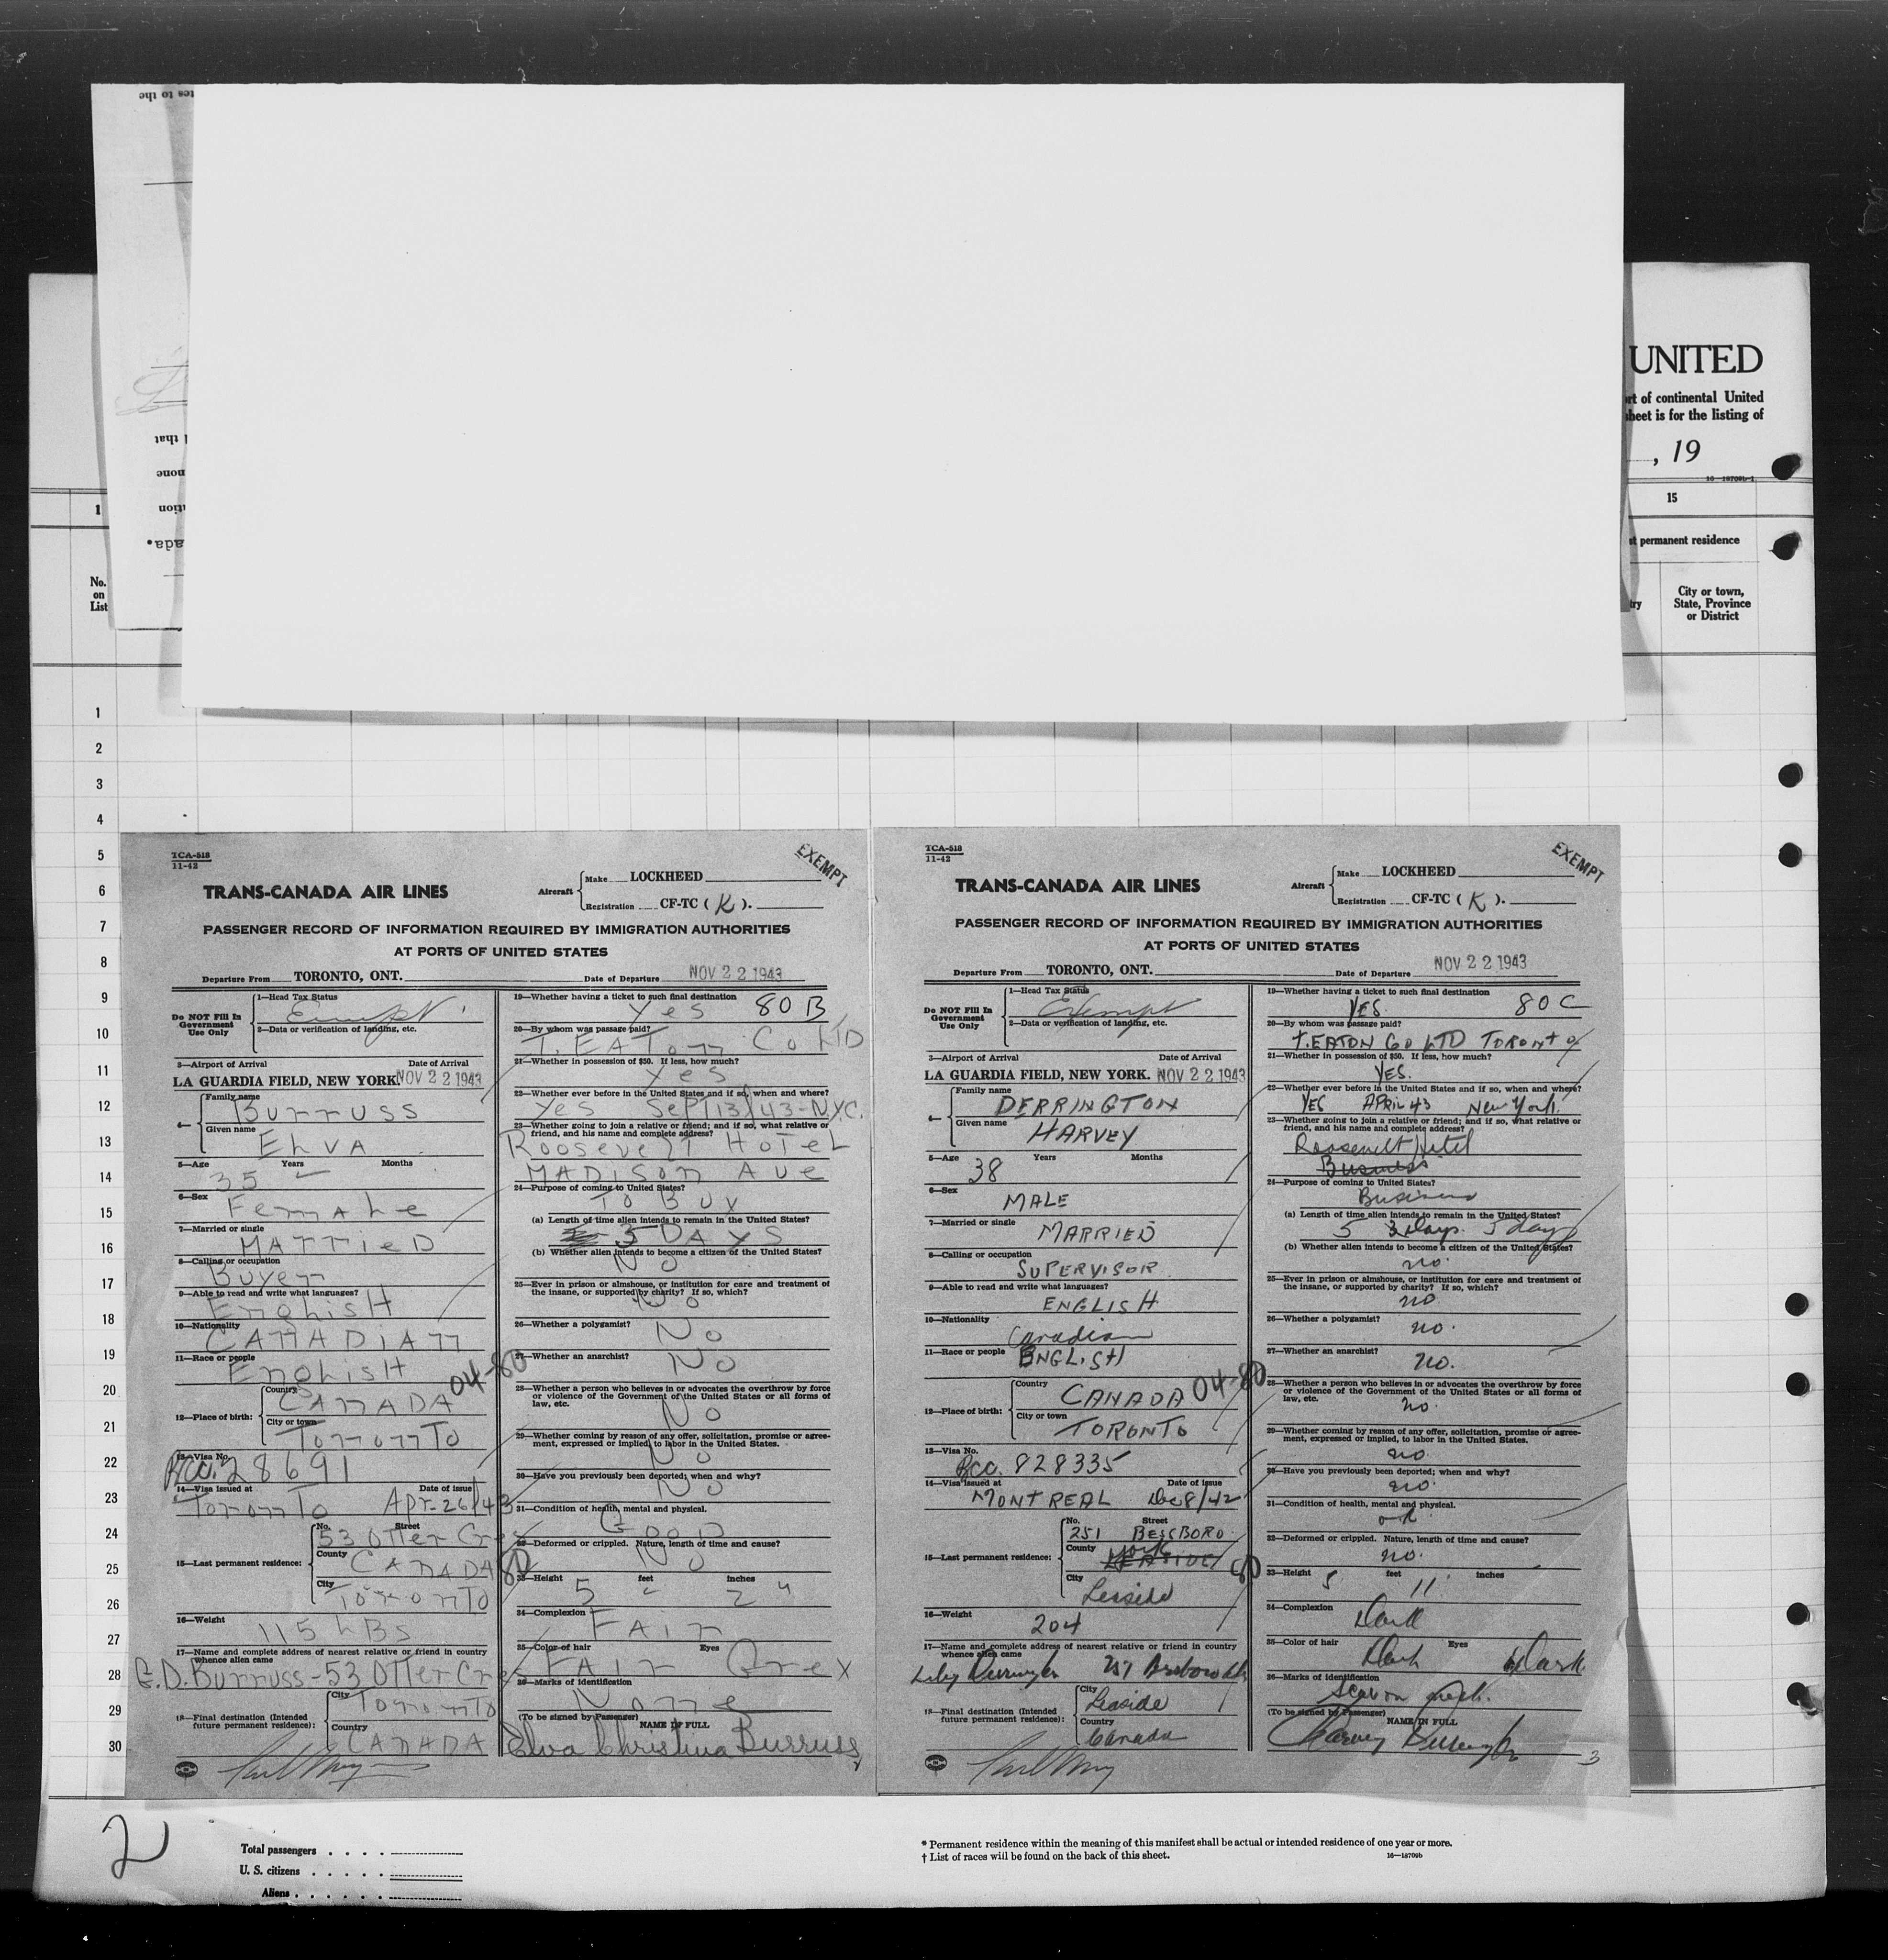 UNITED
rt of continental United
sheet is for the listing of
, 19
16—18709b-1
1
15
t permanent residence
No.
on
List
City or town,
State, Province
or District
1
2
3
4
5
6
7
8
9
10
11
12
13
14
15
16
17
18
19
20
21
22
23
24
25
26
27
28
29
30
TCA-518
11-42
EXEMPT
TRANS-CANADA AIR LINES
Aircraft
Make LOCKHEED
Registration CF-TC ( K ).
PASSENGER RECORD OF INFORMATION REQUIRED BY IMMIGRATION AUTHORITIES
AT PORTS OF UNITED STATES
Departure From TORONTO, ONT. Date of Departure NOV 22 1943
Do NOT Fill In
Government
Use Only
1—Head Tax Status
Exempt
2—Data or verification of landing, etc.
3—Airport of Arrival Date of Arrival
LA GUARDIA FIELD, NEW YORK. NOV 22 1943
4—
Family name
Burruss
Given name
ELVA
5—Age Years Months
35
6—Sex
Female
7—Married or single
MArrieD
8—Calling or occupation
Buyer
9—Able to read and write what languages?
English
10—Nationality
CANADIAN
11—Race or people
English
04-80
12—Place of birth:
Country
CANADA
City or town
Toronto
13—Visa No.
BCC. 28691
14—Visa Issued at Date of issue
Toronto Apr. 26/43
15—Last permanent residence:
No. Street
53 Otter Cres
County
CANADA
80
City
Toronto
16—Weight
115 LBS
17—Name and complete address of nearest relative or friend in country
whence alien came
G.D. Burruss - 53 Otter Cres
18—Final destination (Intended
future permanent residence):
City
Toronto
Country
CANADA
19—Whether having a ticket to such final destination
Yes 80 B
20—By whom was passage paid?
T. EATon Co LTD
21—Whether in possession of $50. If less, how much?
Yes
22—Whether ever before in the United States and if so, when and where?
Yes SepT 13/43 - N.Y.C.
23—Whether going to join a relative or friend; and if so, what relative or
friend, and his name and complete address?
Roosevelt HoTeL
MADison Ave
24—Purpose of coming to United States?
To Buy
(a) Length of time alien intends to remain in the United States?
5 DAYS
(b) Whether alien intends to become a citizen of the United States?
No
25—Ever in prison or almshouse, or institution for care and treatment of
the insane, or supported by charity? If so, which?
No
26—Whether a polygamist?
No
27—Whether an anarchist?
No
28—Whether a person who believes in or advocates the overthrow by force
or violence of the Government of the United States or all forms of
law, etc.
No
29—Whether coming by reason of any offer, solicitation, promise or agree-
ment, expressed or implied, to labor in the United States.
No
30—Have you previously been deported; when and why?
No
31—Condition of health, mental and physical.
Good
32—Deformed or crippled. Nature, length of time and cause?
No
33—Height feet inches
5 2"
34—Complexion
FAir
35—Color of hair Eyes
FAir Grey
36—Marks of identification
None
(To be signed by Passenger)
NAME IN FULL
Elva Christina Burruss
TCA-518
11-42
EXEMPT
TRANS-CANADA AIR LINES
Aircraft
Make LOCKHEED
Registration CF-TC ( K ).
PASSENGER RECORD OF INFORMATION REQUIRED BY IMMIGRATION AUTHORITIES
AT PORTS OF UNITED STATES
Departure From TORONTO, ONT. Date of Departure NOV 22 1943
Do NOT Fill In
Government
Use Only
1—Head Tax Status
Exempt
2—Data or verification of landing, etc.
3—Airport of Arrival Date of Arrival
LA GUARDIA FIELD, NEW YORK. NOV 22 1943
4—
Family name
DERRINGTON
Given name
HARVEY
5—Age Years Months
38
6—Sex
MALE
7—Married or single
MARRIED
8—Calling or occupation
SUPERVISOR
9—Able to read and write what languages?
ENGLISH
10—Nationality
Canadian
11—Race or people
ENGLISH
04-80
12—Place of birth:
Country
CANADA
City or town
TORONTO
13—Visa No.
BCC. 828335
14—Visa Issued at Date of issue
MONTREAL Dec 8/42
15—Last permanent residence:
No. Street
251 BESSBORO
County
York
LEASIDE
80
City
Leaside
16—Weight
204
17—Name and complete address of nearest relative or friend in country
whence alien came
18—Final destination (Intended
future permanent residence):
City
Leaside
Country
Canada
19—Whether having a ticket to such final destination
YES. 80 C
20—By whom was passage paid?
T. EATON Co LTD TORONTO
21—Whether in possession of $50. If less, how much?
YES.
22—Whether ever before in the United States and if so, when and where?
YES APRIL 43 New York.
23—Whether going to join a relative or friend; and if so, what relative or
friend, and his name and complete address?
Roosevelt Hotel
Business
24—Purpose of coming to United States?
Business
(a) Length of time alien intends to remain in the United States?
5 3 Days. 5 days
(b) Whether alien intends to become a citizen of the United States?
no.
25—Ever in prison or almshouse, or institution for care and treatment of
the insane, or supported by charity? If so, which?
no
26—Whether a polygamist?
no.
27—Whether an anarchist?
no.
28—Whether a person who believes in or advocates the overthrow by force
or violence of the Government of the United States or all forms of
law, etc.
no.
29—Whether coming by reason of any offer, solicitation, promise or agree-
ment, expressed or implied, to labor in the United States.
no
30—Have you previously been deported; when and why?
no.
31—Condition of health, mental and physical.
ok.
32—Deformed or crippled. Nature, length of time and cause?
no.
33—Height feet inches
5 11
34—Complexion
Dark
35—Color of hair Eyes
Dark Dark
36—Marks of identification
Scar on
(To be signed by Passenger)
NAME IN FULL
Harvey Derrington
3
2
Total passengers
U. S. citizens
Aliens
* Permanent residence within the meaning of this manifest shall be actual or intended residence of one year or more.
† List of races will be found on the back of this sheet.
16—18709b